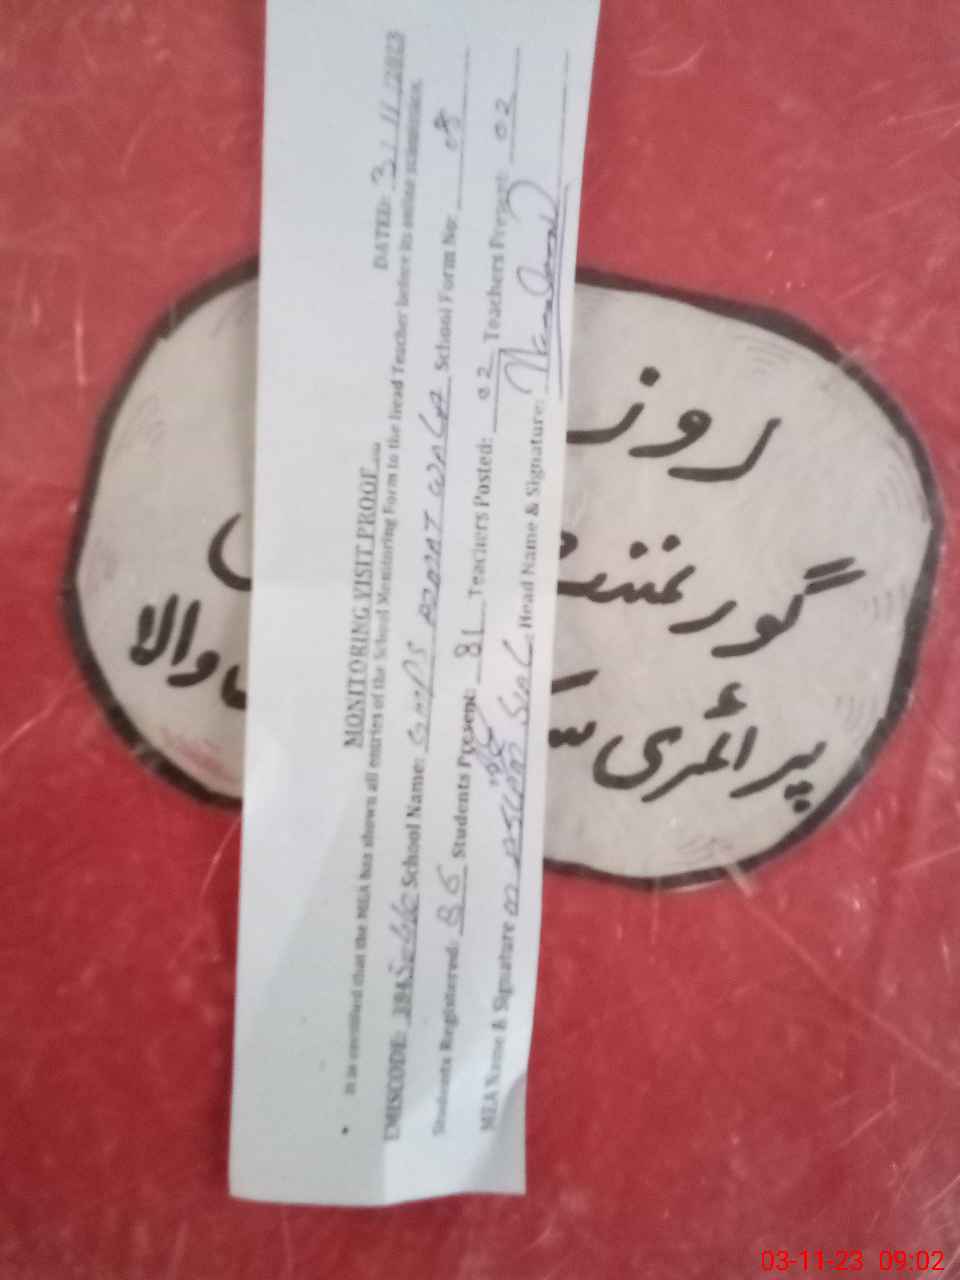 MONITORING VISIT PROOF
DATED: 3/11/2023
It is certified that the MEA has shown all entries of the School Monitoring Form to the Head Teacher before its online submission.
EMISCODE: School Name: GMPS WALA School Form No: 08
Students Registered: 86 Students Present: 81 Teachers Posted: 02 Teachers Present: 02
MEA Name & Signature Head Name & Signature:
روز
گورنمنٹ
پرائمری والا
03-11-23 09:02